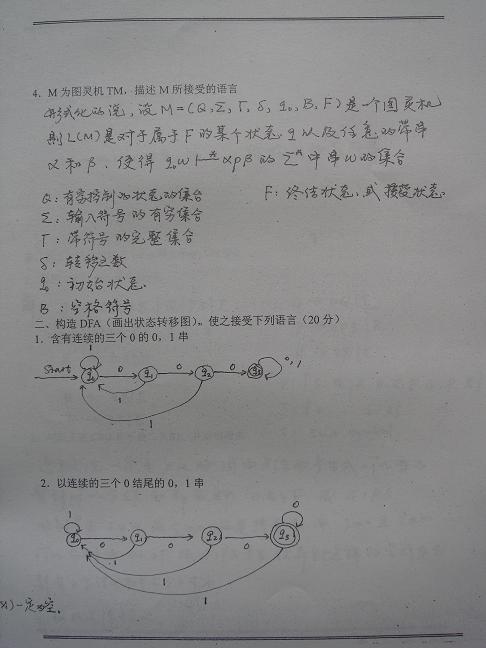 4．M 为图灵机 TM，描述 M 所接受的语言
形式化的说，设 M = (Q, Σ, Γ, δ, q₀, B, F) 是一个图灵机
则 L(M) 是对于属于 F 的某个状态 q 以及任意的带串
α 和 β，使得 q₀w ⊢* αpβ 的 Σ* 中串 w 的集合
Q：有穷控制的状态的集合 F：终结状态，或接受状态.
Σ：输入符号的有穷集合
Γ：带符号的完整集合
δ：转移函数
q₀：初始状态.
B：空格符号
二、构造 DFA（画出状态转移图），使之接受下列语言（20 分）
1．含有连续的三个 0 的 0，1 串
1
Start q₀ 0 q₁ 0 q₂ 0 q₃ 0, 1
1
1
2．以连续的三个 0 结尾的 0，1 串
1 0
q₀ 0 q₁ 0 q₂ 0 q₃
1
1
1
一定为空。